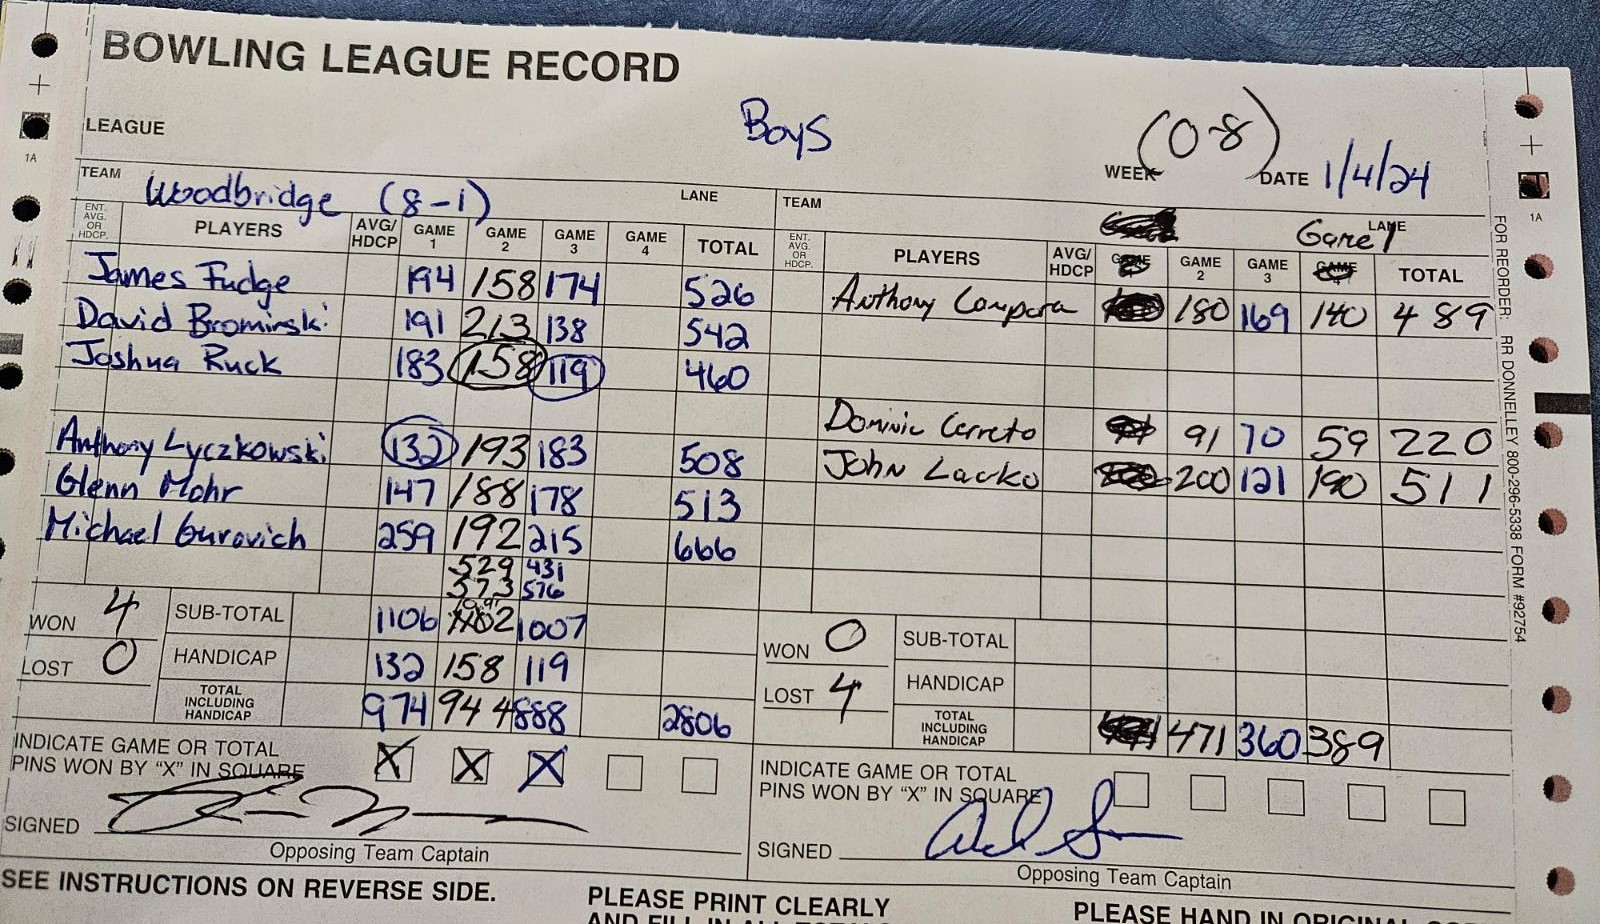 BOWLING LEAGUE RECORD
LEAGUE
Boys
(0-8)
WEEK
DATE 1/4/24
TEAM Woodbridge (8-1) LANE
ENT. AVG. OR HDCP. PLAYERS AVG/HDCP GAME 1 GAME 2 GAME 3 GAME 4 TOTAL
James Fudge 194 158 174 526
David Brominski 191 213 138 542
Joshua Ruck 183 158 119 460
Anthony Lyczkowski 132 193 183 508
Glenn Mohr 147 188 178 513
Michael Gurovich 259 192 215 666
529 431
573 576
WON 4 SUB-TOTAL 1106 1102 1007
LOST 0 HANDICAP 132 158 119
TOTAL INCLUDING HANDICAP 974 944 888 2806
INDICATE GAME OR TOTAL
PINS WON BY "X" IN SQUARE X X X
SIGNED
Opposing Team Captain
TEAM LANE
Game 1
ENT. AVG. OR HDCP. PLAYERS AVG/HDCP GAME 2 GAME 3 TOTAL
Anthony Campora 180 169 140 489
Dominic Cerreto 91 70 59 220
John Lacko 200 121 190 511
WON 0 SUB-TOTAL
LOST 4 HANDICAP
TOTAL INCLUDING HANDICAP 471 360 389
INDICATE GAME OR TOTAL
PINS WON BY "X" IN SQUARE
SIGNED
Opposing Team Captain
SEE INSTRUCTIONS ON REVERSE SIDE.
PLEASE PRINT CLEARLY
AND FILL IN ALL TOTALS
PLEASE HAND IN ORIGINAL
FOR REORDER: RR DONNELLEY 800-296-5338 FORM #92754
1A
1A